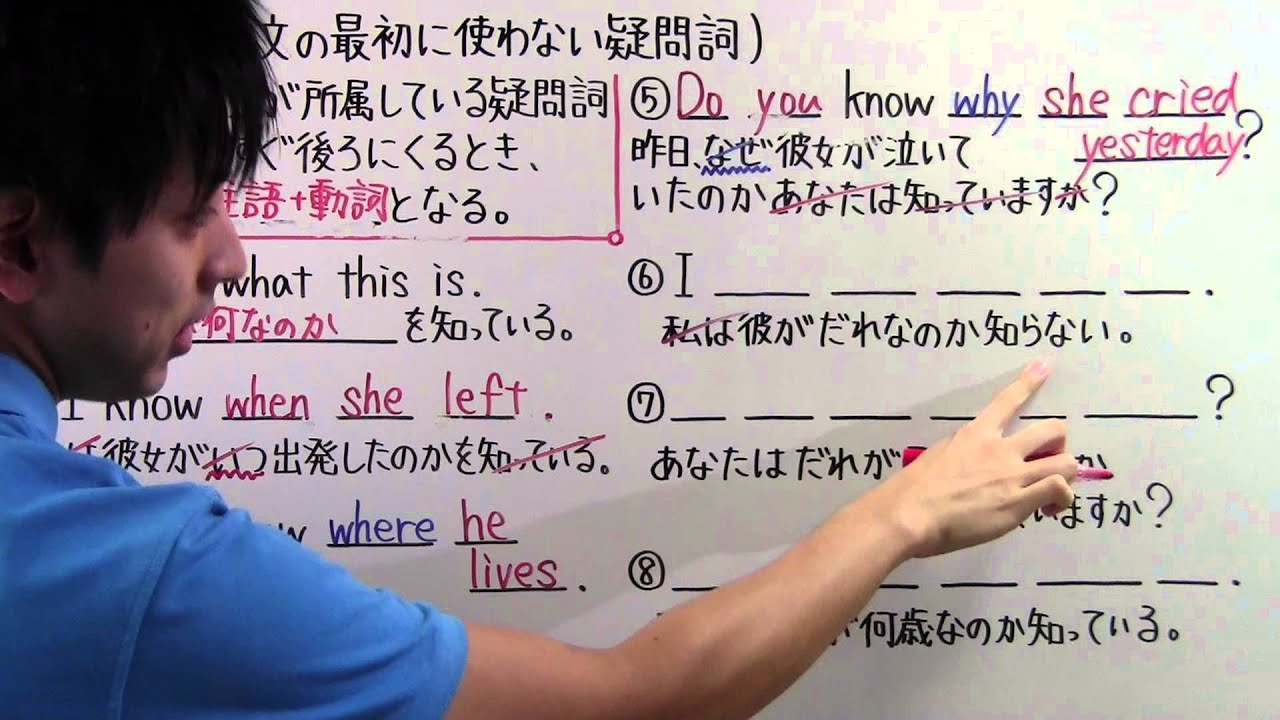 文の最初に使わない疑問詞)
が所属している疑問詞
後ろにくるとき、
主語+動詞となる。
what this is.
何なのか を知っている。
I know when she left.
は彼女がいつ出発したのかを知っている。
where he
lives.
⑤ Do you know why she cried
yesterday?
昨日、なぜ彼女が泣いて
いたのかあなたは知っていますか?
⑥ I ___ ___ ___ ___ ___.
私は彼がだれなのか知らない。
⑦ ___ ___ ___ ___ ___ ___?
あなたはだれが か
いますか?
⑧ ___ ___ ___ ___ ___.
何歳なのか知っている。